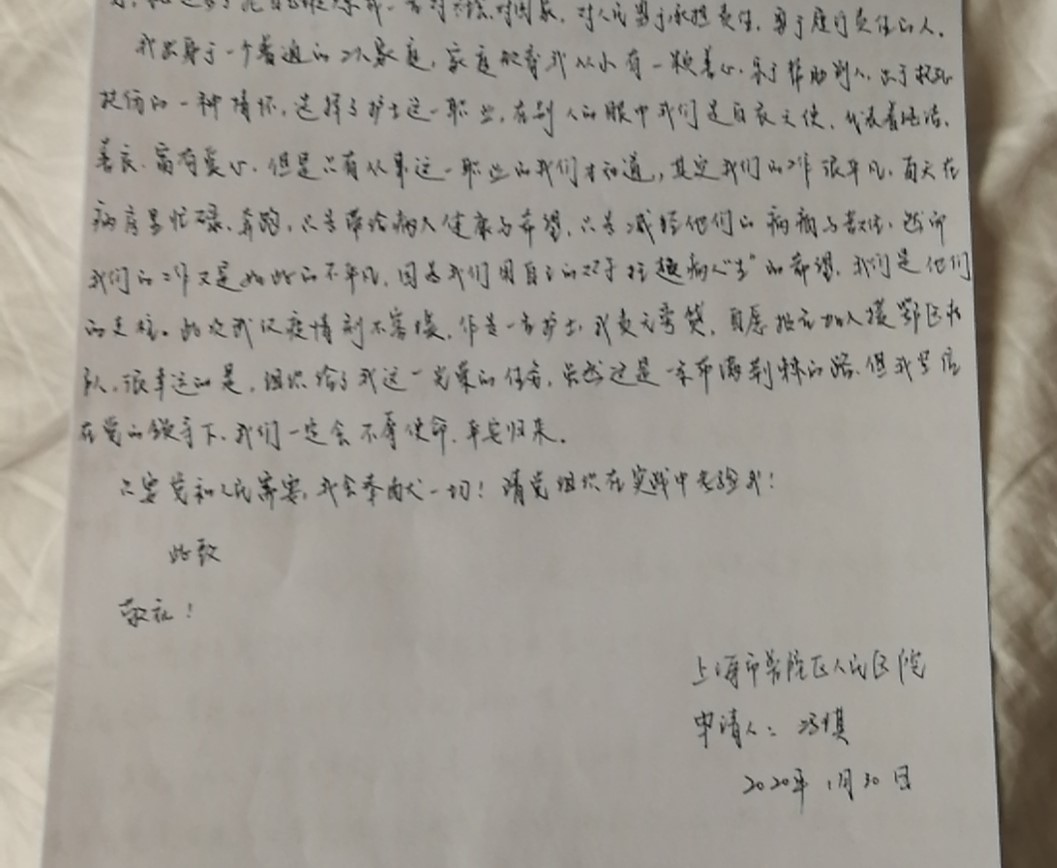 对人民勇于承担责任，勇于履行责任的人。
我出身于一个普通的工人家庭，家庭教育我从小有一颗善心，乐于帮助别人，出于救死
扶伤的一种情怀，选择了护士这一职业，在别人的眼中我们是白衣天使，代表着纯洁、
善良、富有爱心，但是只有从事这一职业的我们才知道，其实我们的工作很平凡，每天在
病房里忙碌、奔跑，只为带给病人健康与希望，只为减轻他们的病痛与，然而
我们的工作又是如此的不平凡，因为我们用自己的双手托起病人“生”的希望，我们是他们
的支柱。此次武汉疫情刻不容缓，作为一名护士，我责无旁贷，自愿报名加入援鄂医疗
队，很幸运的是，组织给了我这一光荣的任务，虽然这是一条布满荆棘的路，但我坚信
在党的领导下，我们一定会不辱使命，平安归来。
只要党和人民需要，我会奉献一切！请党组织在实践中考验我！
此致
敬礼！
上海市普陀区人民医院
申请人：冯琪
2020年1月30日